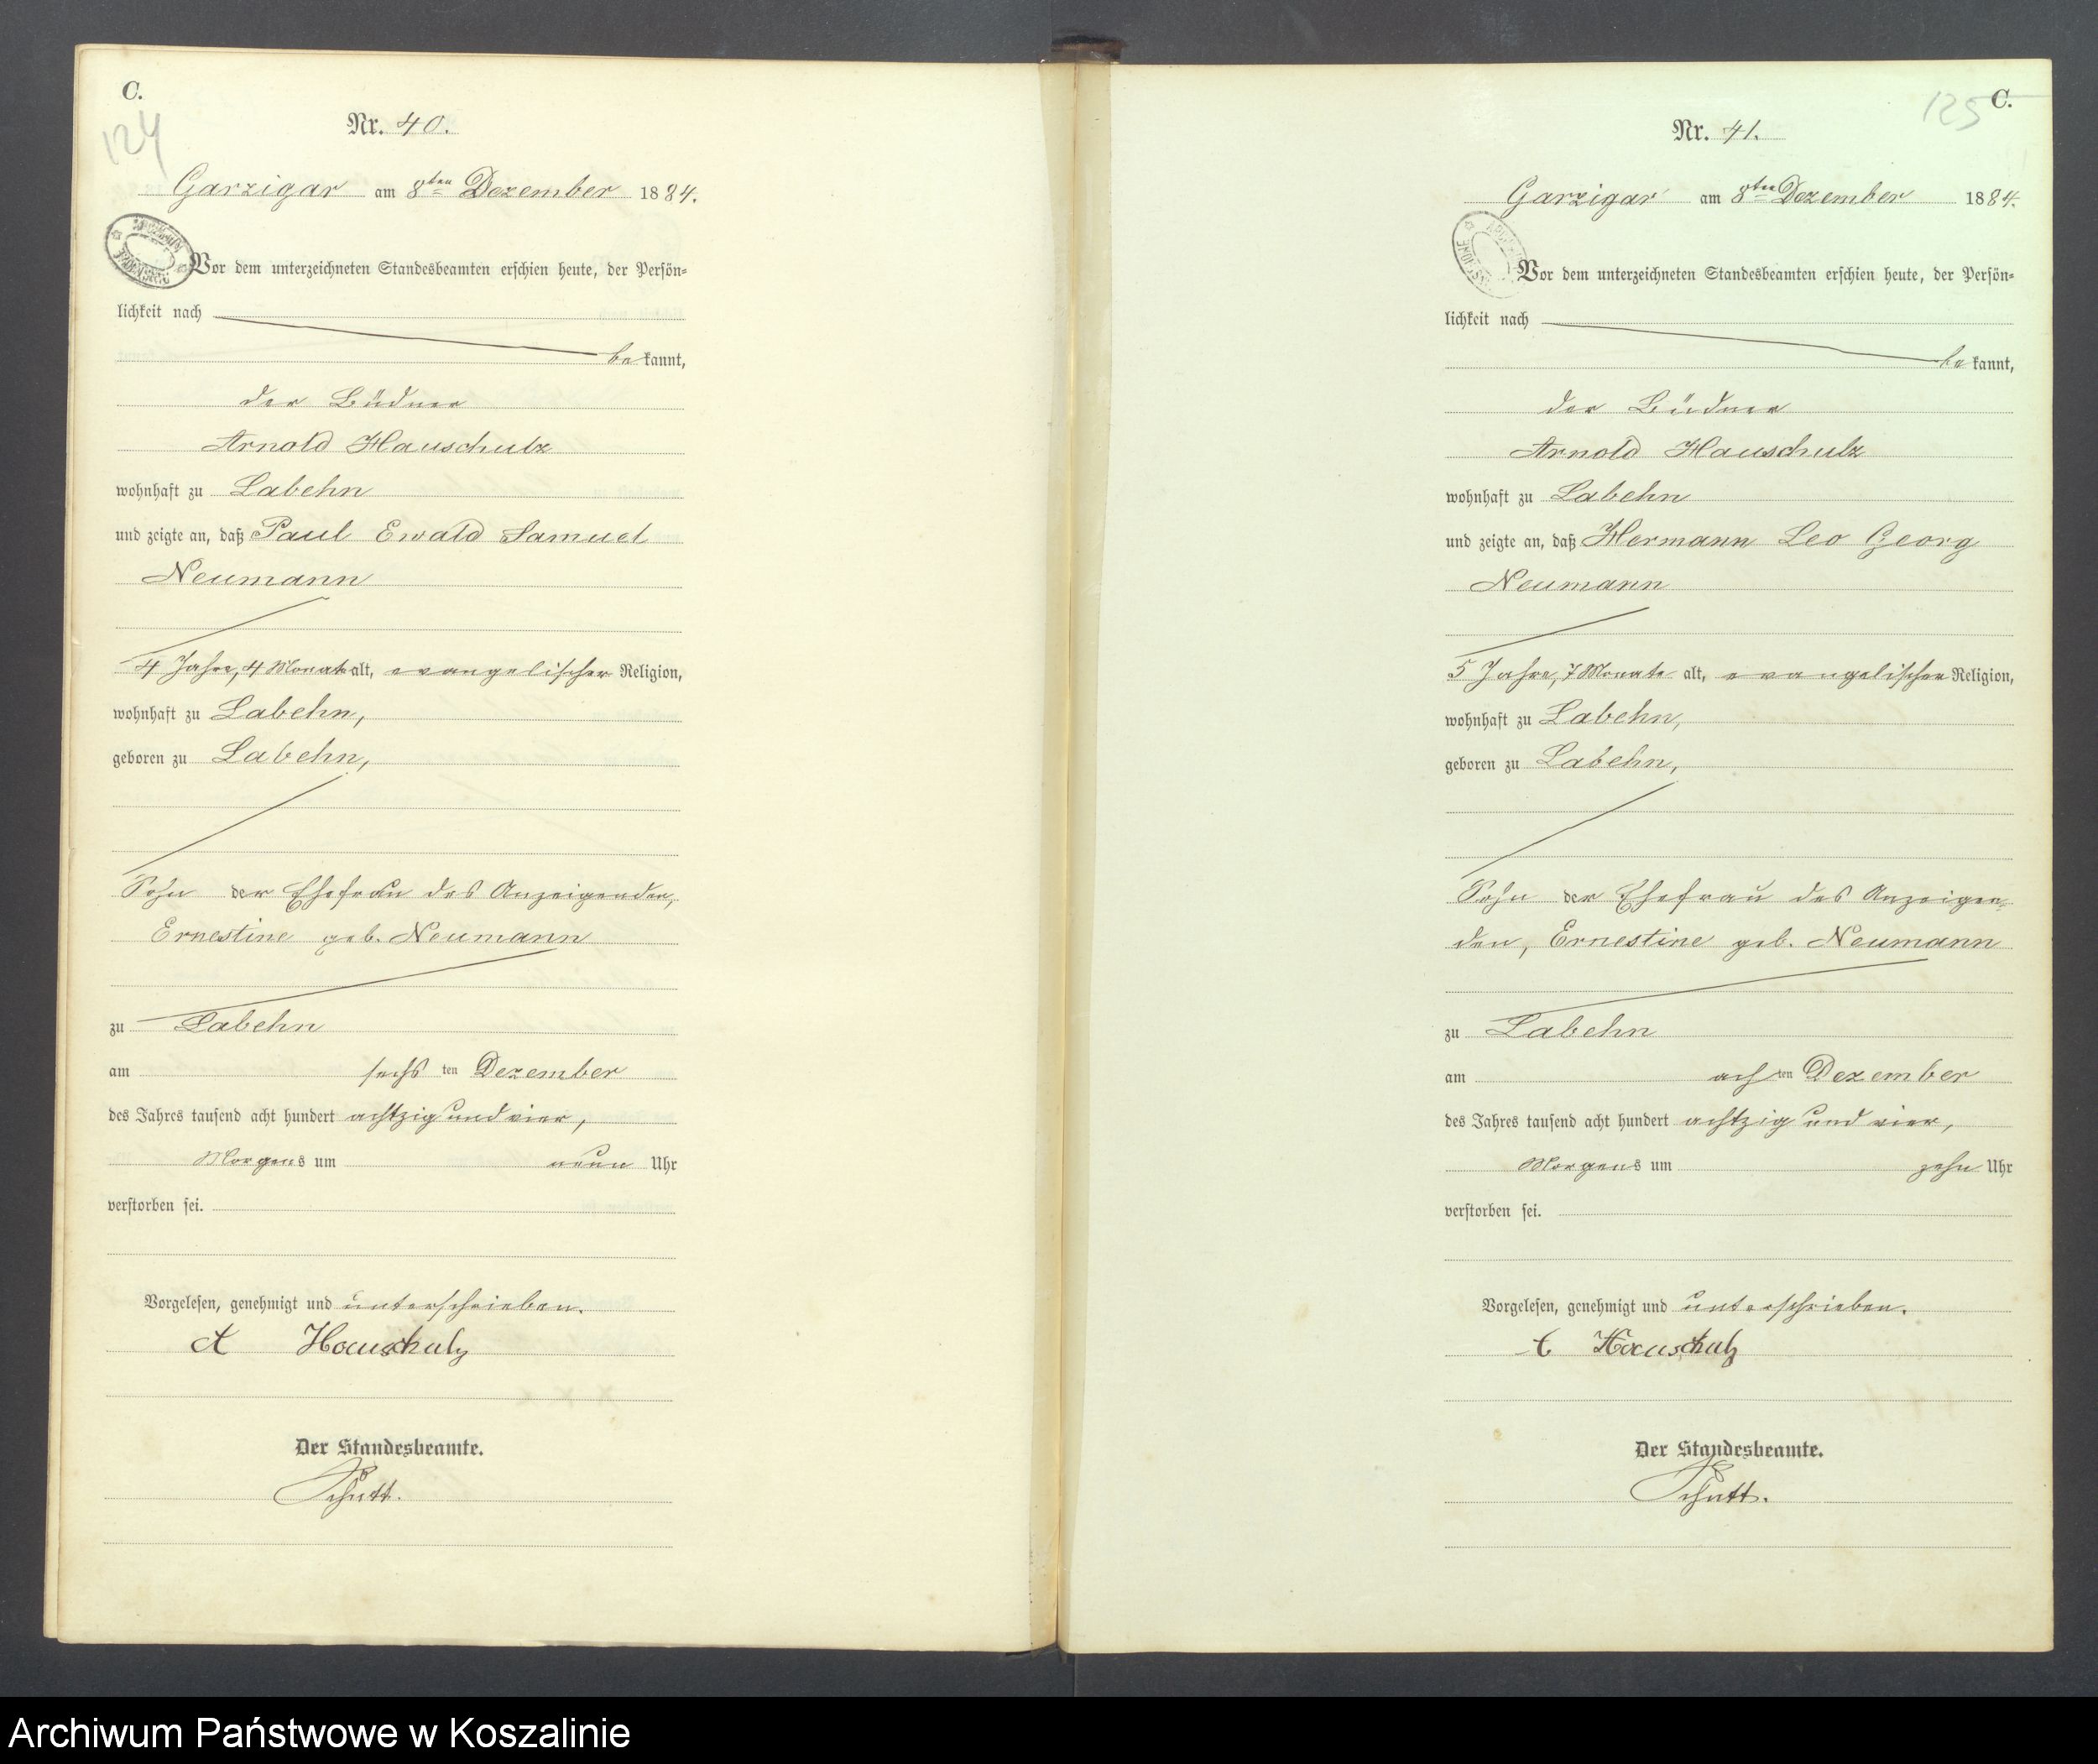 C.
124
Nr. 40.
Garzigar am 8ten Dezember 1884.
Vor dem unterzeichneten Standesbeamten erschien heute, der Persön-
lichkeit nach
bekannt,
der Büdner
Arnold Hauschulz
wohnhaft zu Labehn
und zeigte an, daß Paul Ewald Samuel
Neumann
4 Jahre, 4 Monate alt, evangelischer Religion,
wohnhaft zu Labehn,
geboren zu Labehn,
Sohn der Ehefrau des Anzeigenden,
Ernestine geb. Neumann
zu Labehn
am sechsten Dezember
des Jahres tausend acht hundert achtzig und vier,
Morgens um neun Uhr
verstorben sei.
Vorgelesen, genehmigt und unterschrieben.
A Hauschulz
Der Standesbeamte.
Schutt.
C.
125
Nr. 41.
Garzigar am 8ten Dezember 1884.
Vor dem unterzeichneten Standesbeamten erschien heute, der Persön-
lichkeit nach
bekannt,
der Büdner
Arnold Hauschulz
wohnhaft zu Labehn
und zeigte an, daß Hermann Leo Georg
Neumann
5 Jahre, 7 Monate alt, evangelischer Religion,
wohnhaft zu Labehn,
geboren zu Labehn,
Sohn der Ehefrau des Anzeigen-
den, Ernestine geb. Neumann
zu Labehn
am achten Dezember
des Jahres tausend acht hundert achtzig und vier,
Morgens um zehn Uhr
verstorben sei.
Vorgelesen, genehmigt und unterschrieben.
A Hauschulz
Der Standesbeamte.
Schutt.
Archiwum Państwowe w Koszalinie